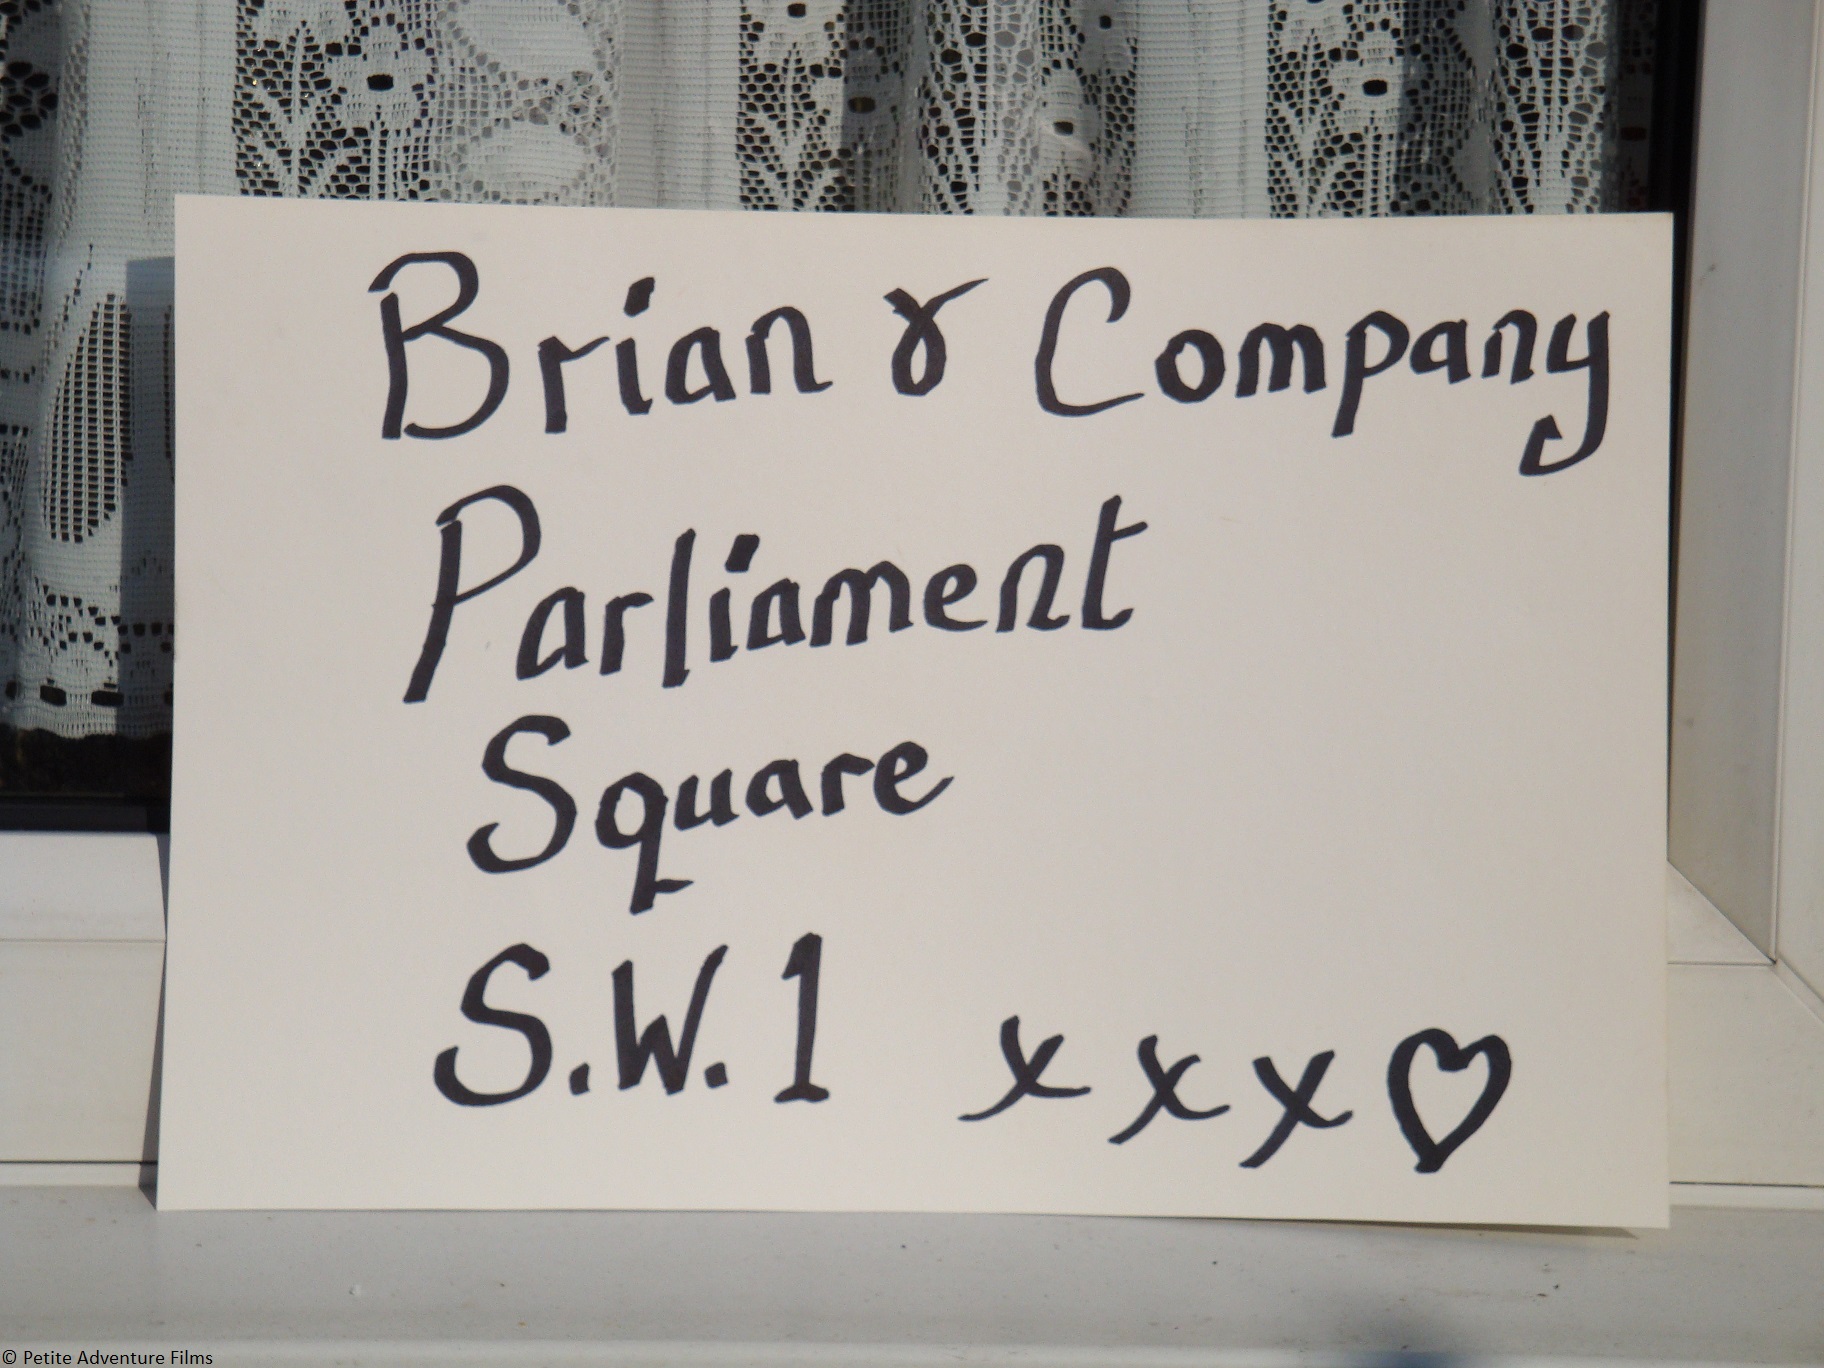 Brian & Company
Parliament
Square
S.W.1 x x x ♡
© Petite Adventure Films